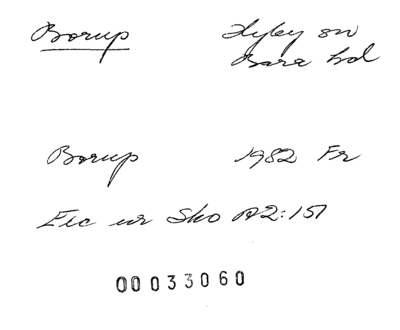 Borup Hyby sn
Bara hd
Borup 1982 Fr
Exc ur Sko A2:151
00033060